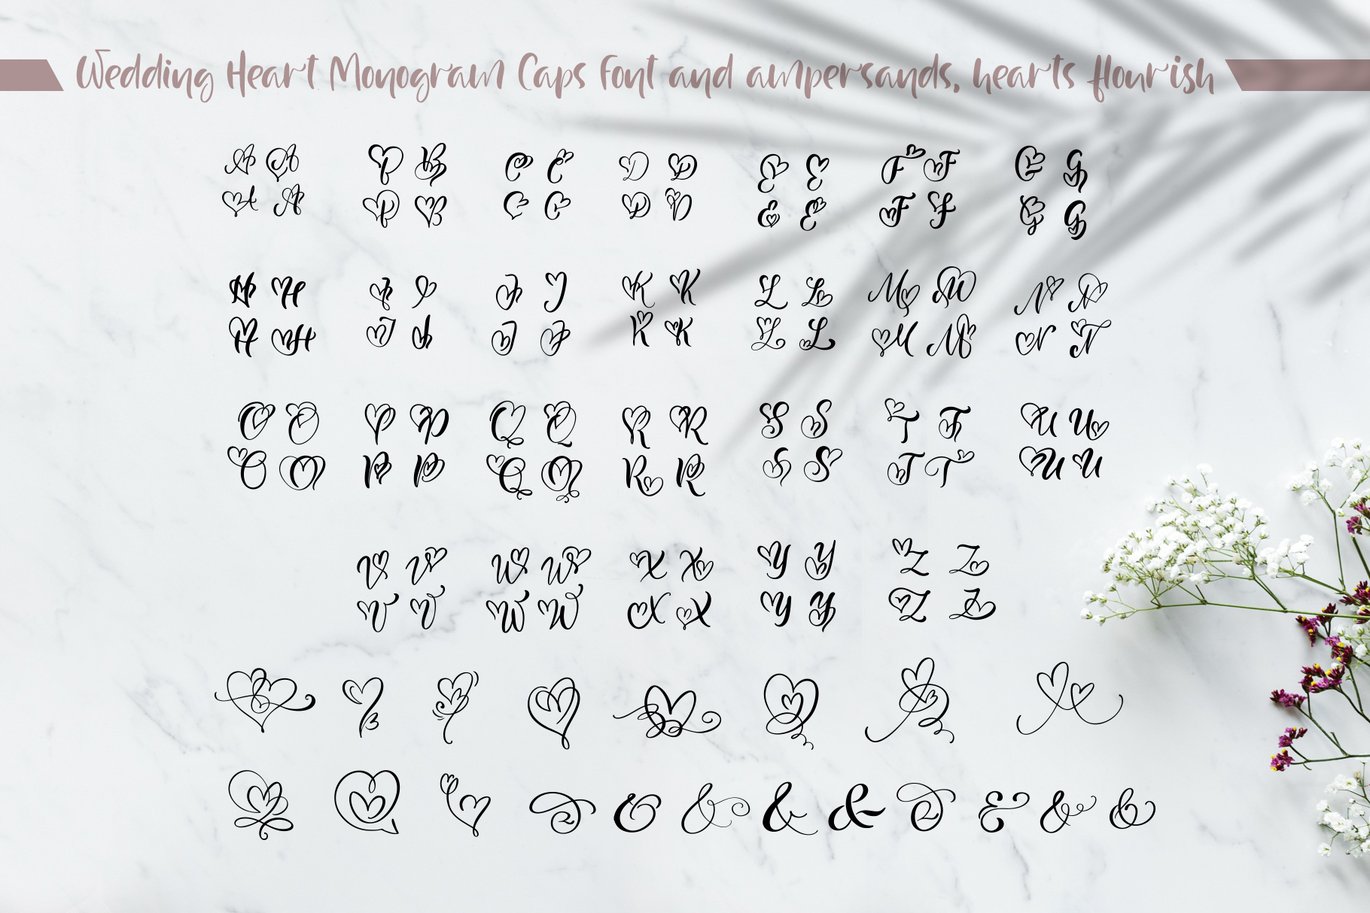 Wedding Heart Monogram Caps Font and ampersands, hearts flourish
A A B B C C D D E E F F G G
A A B B C C D D E E F F G G
H H I I J J K K L L M M N N
H H I I J J K K L L M M N N
O O P P Q Q R R S S T T U U
O O P P Q Q R R S S T T U U
V V W W X X Y Y Z Z
V V W W X X Y Y Z Z
& & & & & & & & &